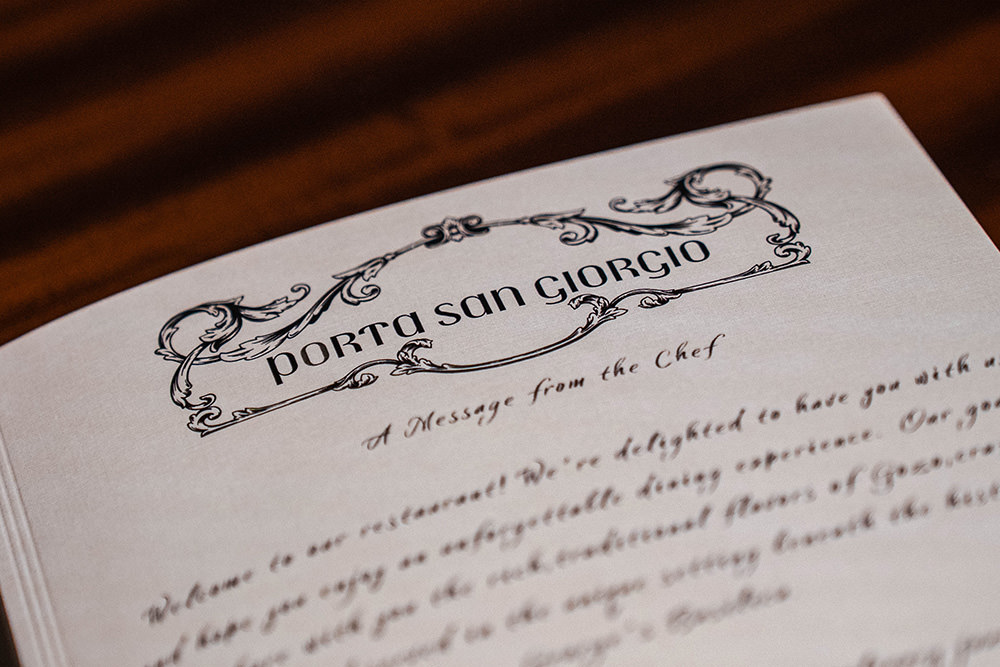 PORTA SAN GIORGIO
A Message from the Chef
Welcome to our restaurant! We're delighted to have you with
and hope you enjoy an unforgettable dining experience. Our
with you the rich, traditional flavors of Gozo,
in the unique setting beneath the
George's Basilica